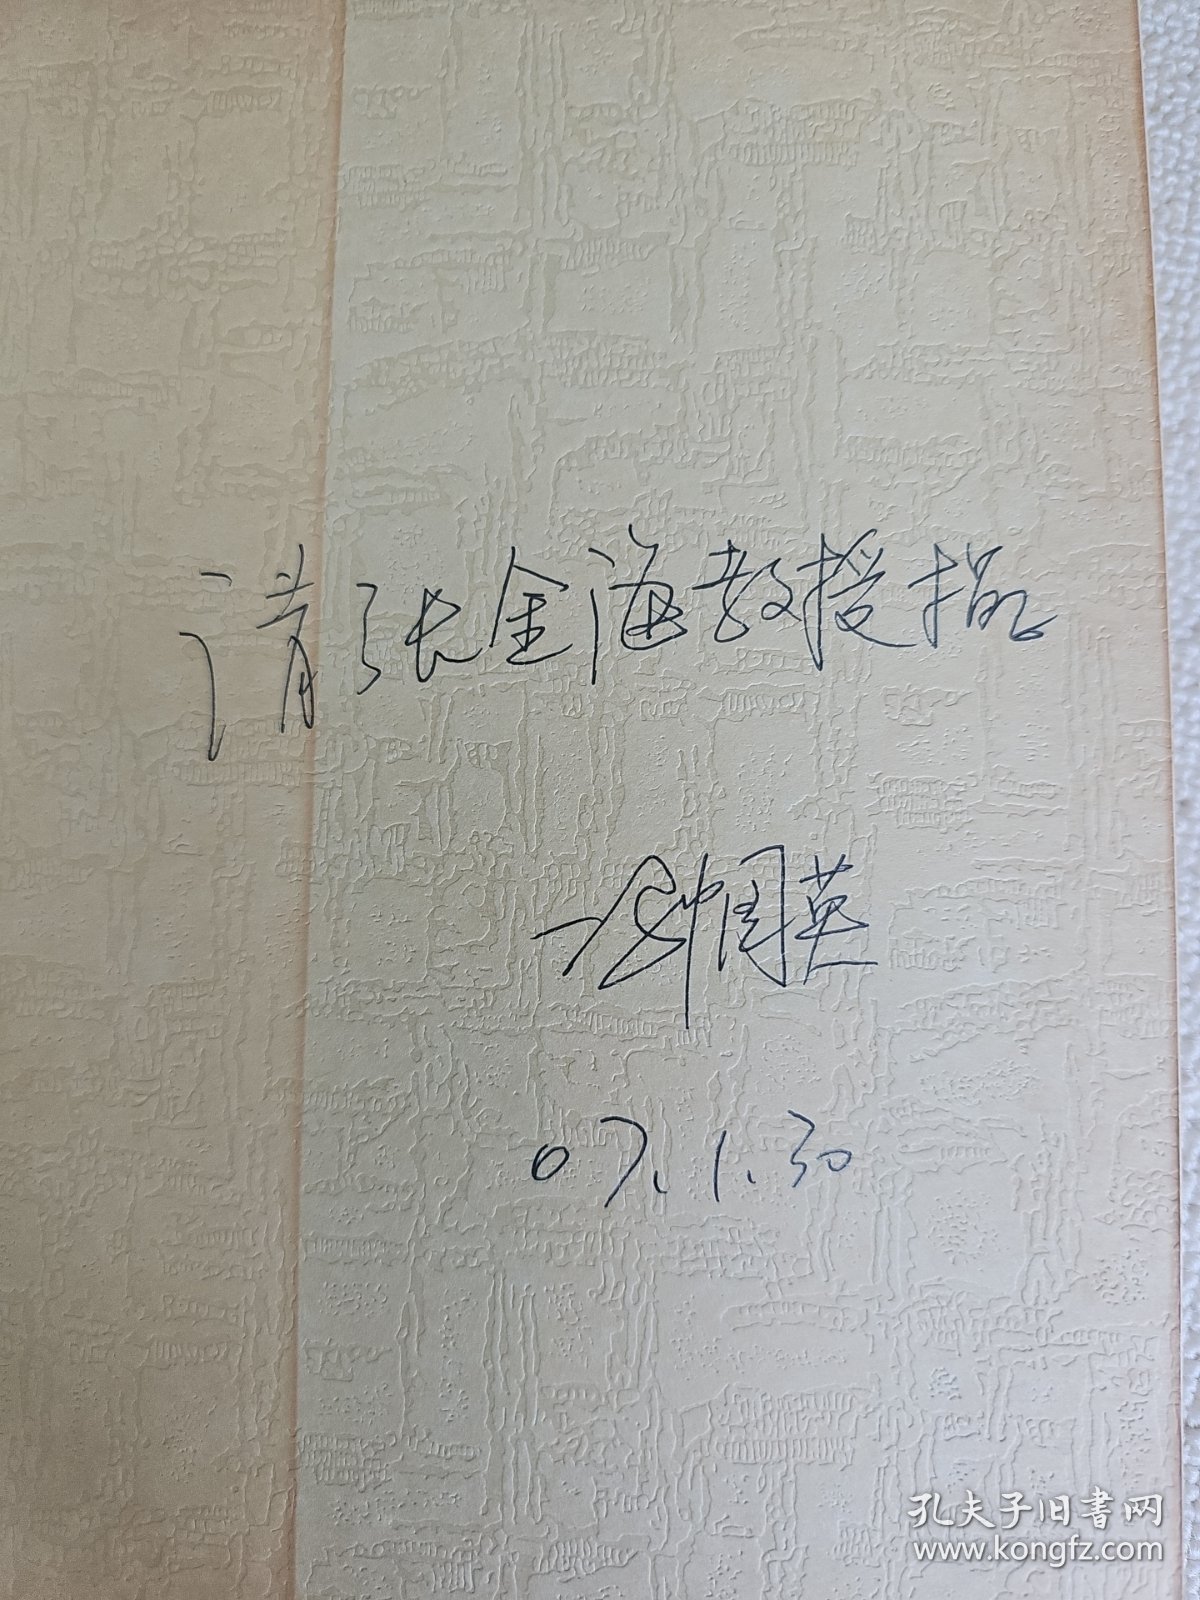 请张金海教授指
钟国英
07.1.30
孔夫子旧書网
www.kongfz.com